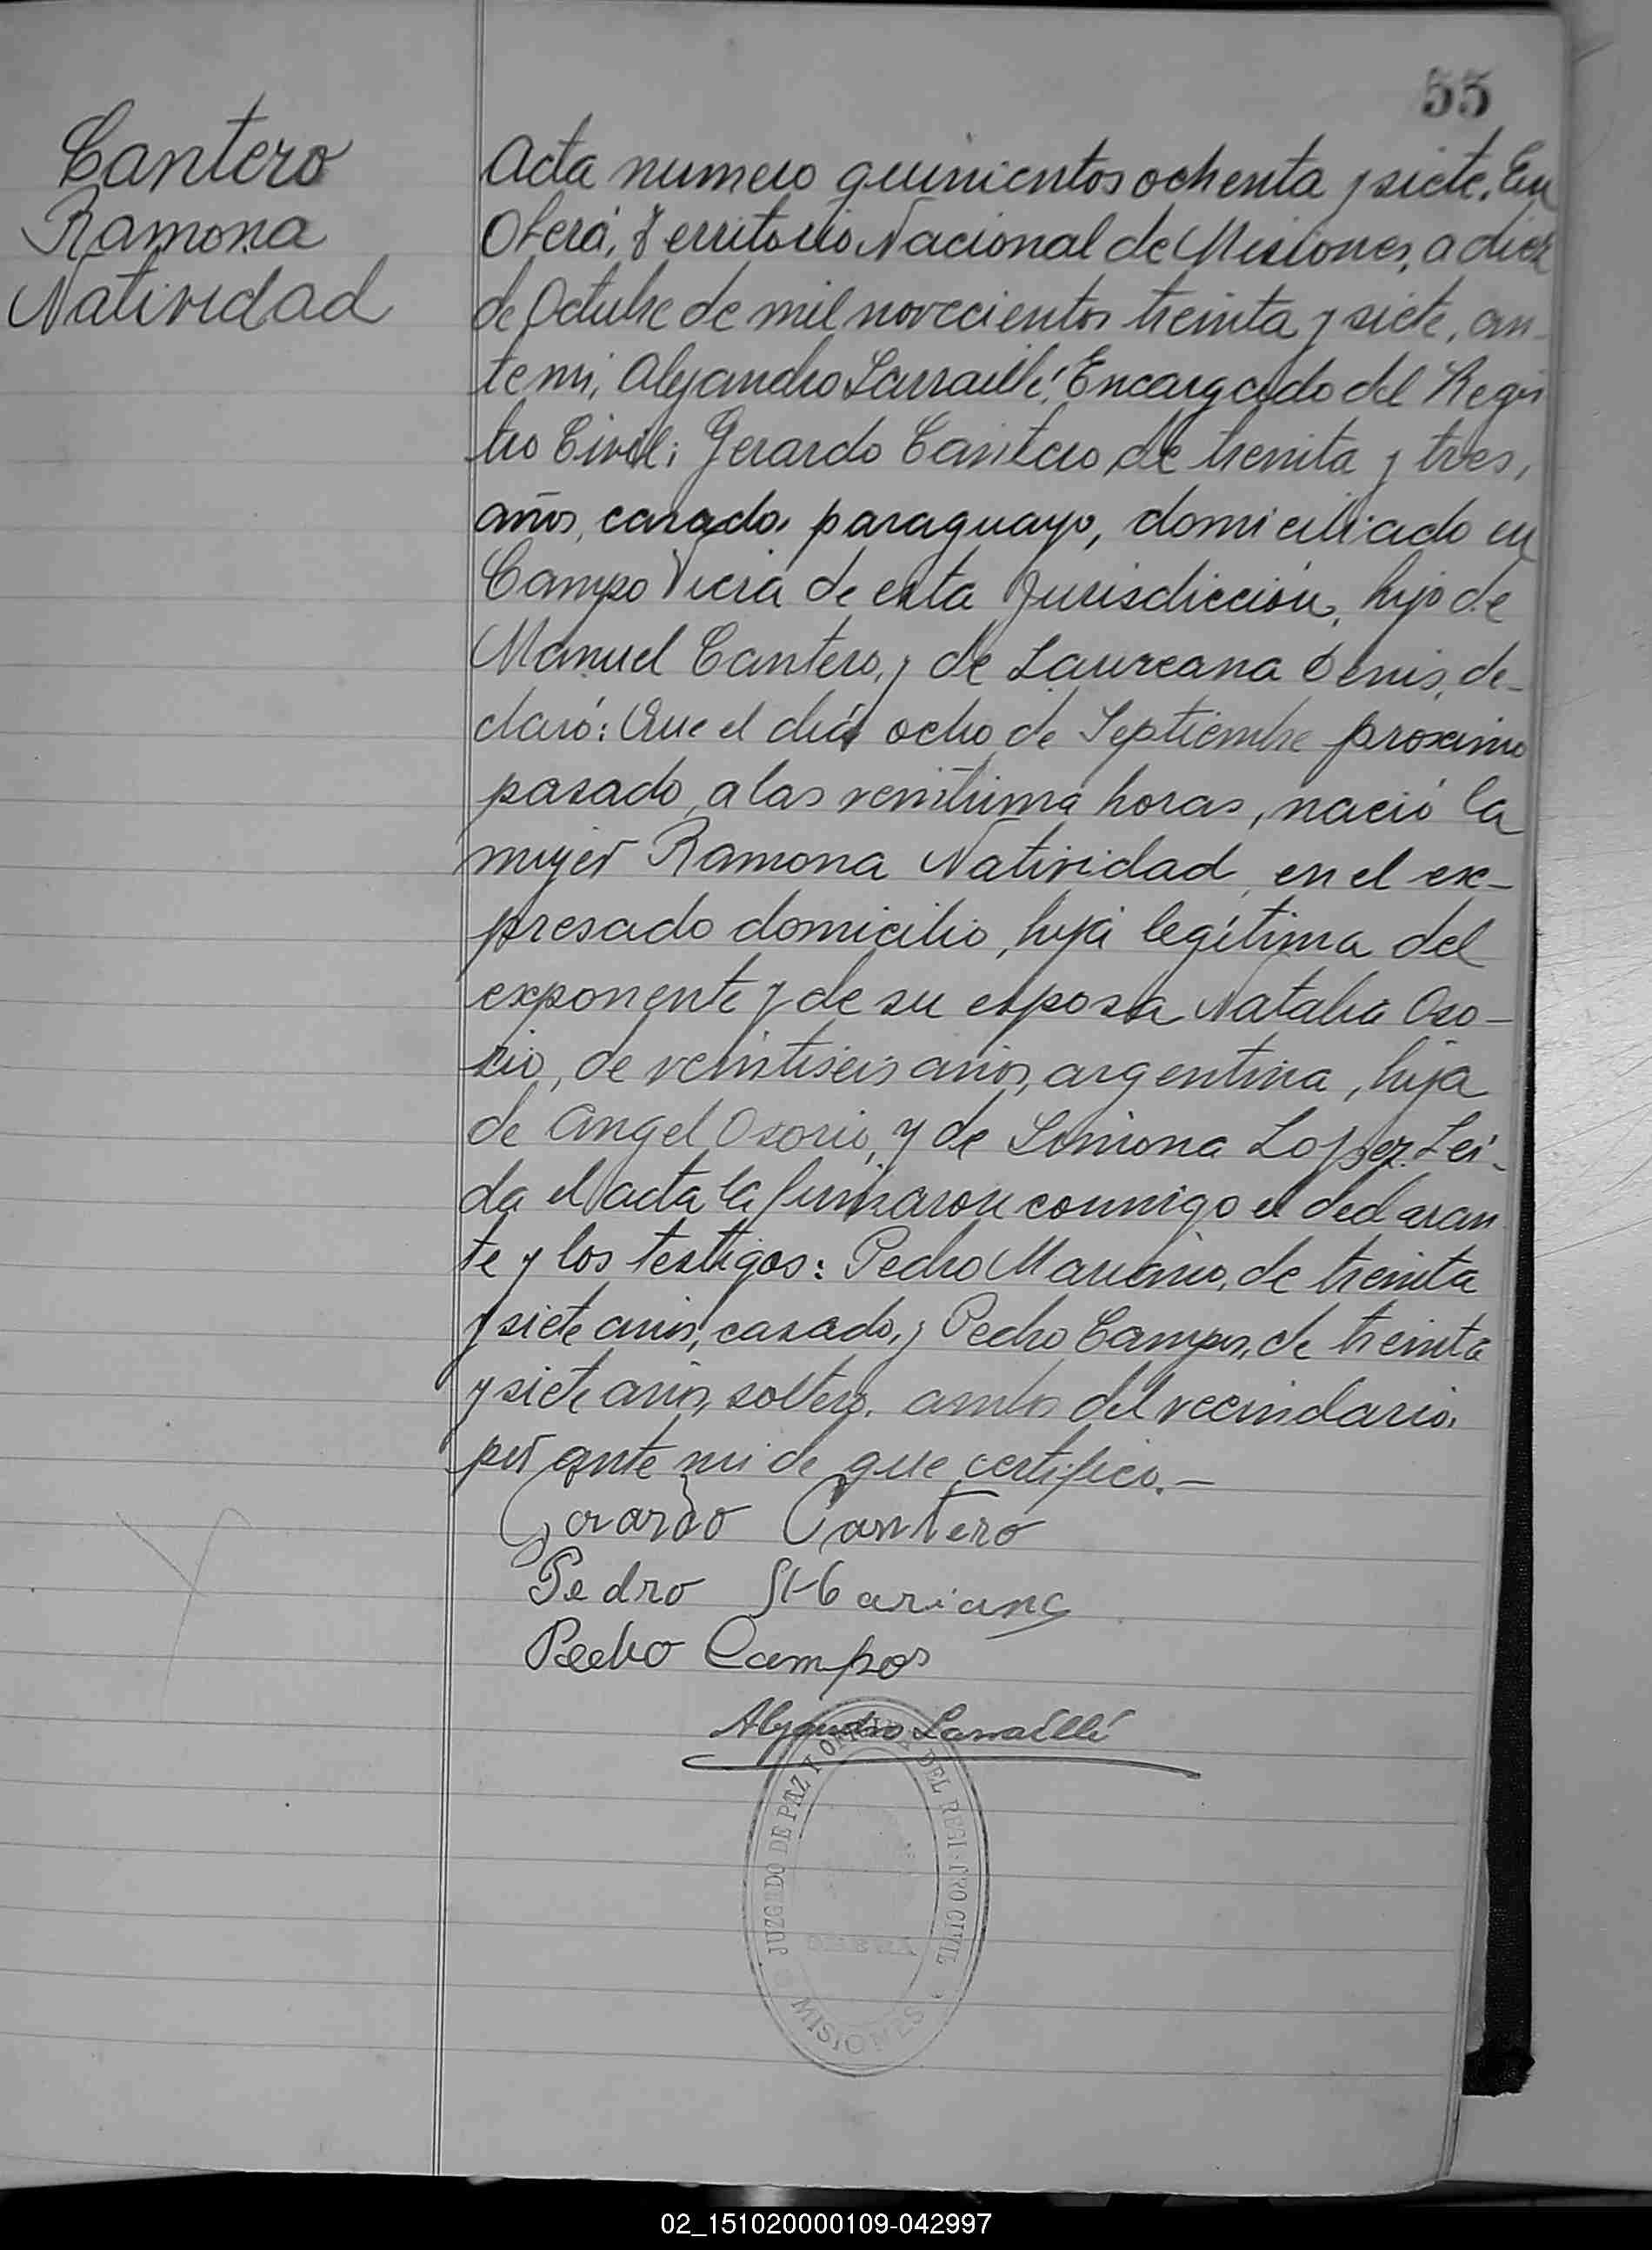 55
Cantero
Ramona
Natividad
Acta numero quinientos ochenta y siete. En
Oberá, Territorio Nacional de Misiones, a diez
de Octubre de mil novecientos treinta y siete, an-
te mi, Alejandro Larraillé, Encargado del Regis
tro Civil; Gerardo Cantero, de treinta y tres,
años, casado, paraguayo, domiciliado en
Campo Viera de esta Jurisdicción, hijo de
Manuel Cantero, y de Laureana Denis, de-
claró: Que el día ocho de Septiembre proximo
pasado, a las veintiuna horas, nació la
mujer Ramona Natividad, en el ex-
presado domicilio, hija legítima del
exponente y de su esposa Natalia Oso-
rio, de veintiseis años, argentina, hija
de Angel Osorio, y de Simona Lopez. Leí-
da el acta la firmaron conmigo el declaran
te y los testigos: Pedro Mariano, de treinta
y siete años, casado, y Pedro Campos, de treinta
y siete años, soltero, ambos del vecindario,
por ante mi de que certifico.-
Gerardo Cantero
Pedro Mariano
Pedro Campos
Alejandro Larraillé
JUZGADO DE PAZ Y OFICINA DEL REGISTRO CIVIL
OBERÁ
MISIONES
02_151020000109-042997